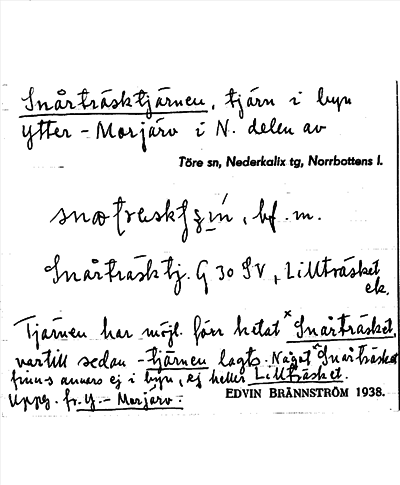 Snårträsktjärnen, tjärn i byn
Ytter-Morjärv i N. delen av
Töre sn, Nederkalix tg, Norrbottens l.
bf. m.
Snårträsktj. G 30 SV, Lillträsket
ek.
Tjärnen har möjl. förr hetat ˣSnårträsket,
vartill sedan -tjärnen lagts. Något ˣSnårträsket
finns annars ej i byn, ej heller Lillträsket.
Uppg. fr. Y.-Morjärv.
EDVIN BRÄNNSTRÖM 1938.